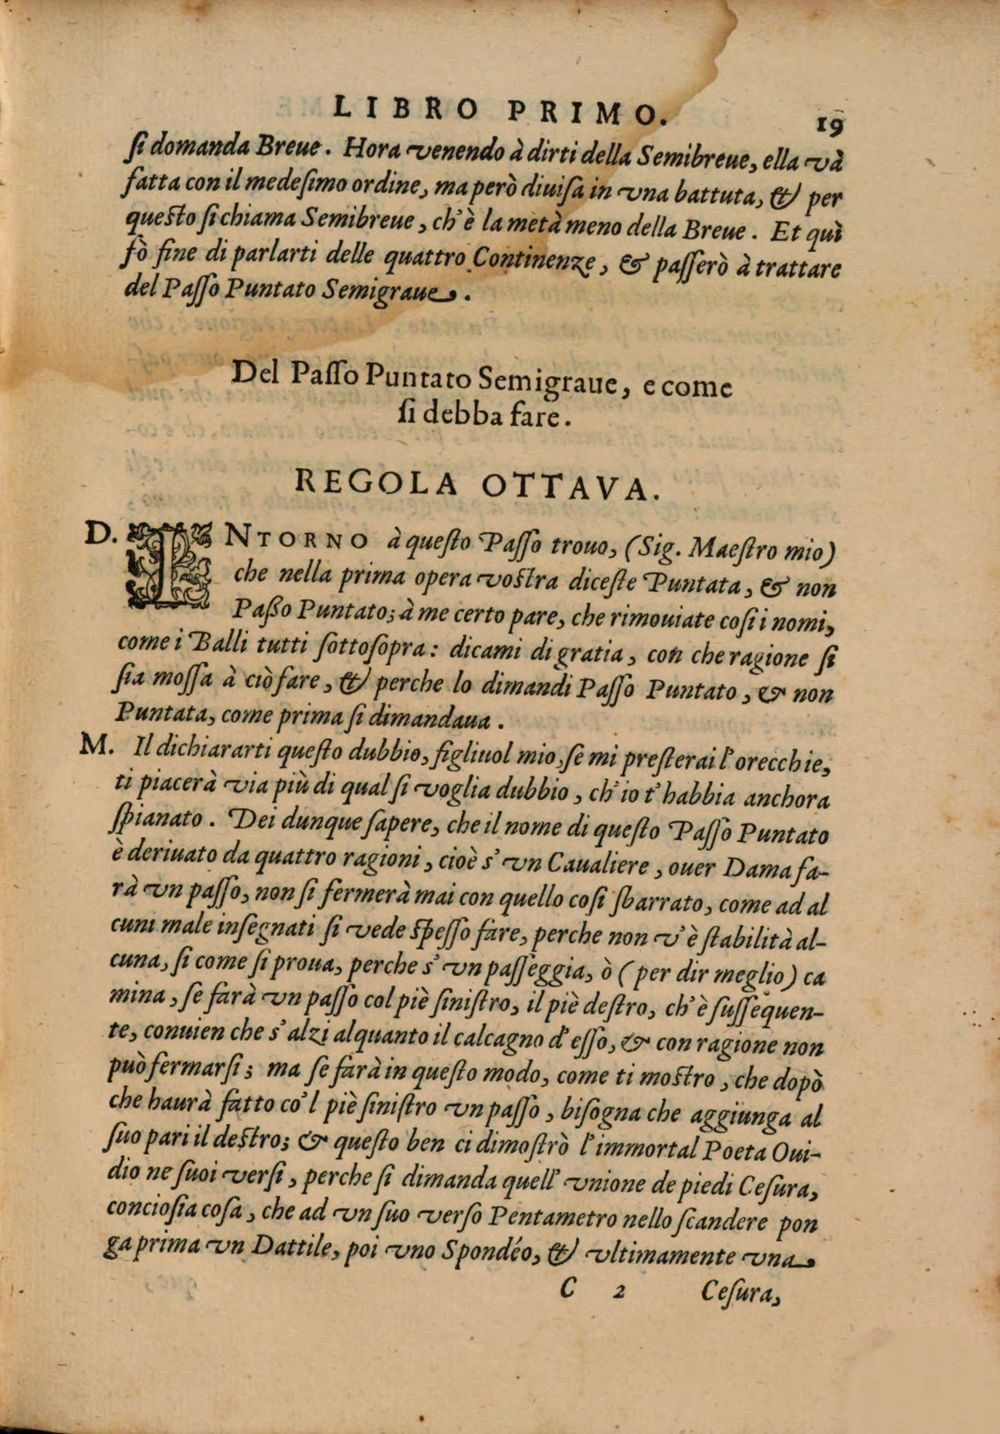 LIBRO PRIMO. 19
ſi domanda Breue. Hora venendo à dirti della Semibreue, ella và
fatta con il medeſimo ordine, ma però diuiſa in vna battuta, & per
queſto ſi chiama Semibreue, ch'è la metà meno della Breue. Et quì
fò fine di parlarti delle quattro Continenze, & paſſerò à trattare
del Paſſo Puntato Semigraue.
Del Paſſo Puntato Semigraue, e come
ſi debba fare.
REGOLA OTTAVA.
D. INTORNO à queſto Paſſo trouo, (Sig. Maeſtro mio)
che nella prima opera voſtra diceſte Puntata, & non
Paßo Puntato; à me certo pare, che rimouiate coſi i nomi,
come i Balli tutti ſottoſopra: dicami di gratia, con che ragione ſi
ſia moſſa à ciò fare, & perche lo dimandi Paſſo Puntato, & non
Puntata, come prima ſi dimandaua.
M. Il dichiararti queſto dubbio, figliuol mio, ſe mi preſterai l'orecchie,
ti piacerà via più di qual ſi voglia dubbio, ch'io t'habbia anchora
ſpianato. Dei dunque ſapere, che il nome di queſto Paſſo Puntato
è deriuato da quattro ragioni, cioè s'vn Caualiere, ouer Dama fa-
rà vn paſſo, non ſi fermerà mai con quello coſi ſbarrato, come ad al
cuni male inſegnati ſi vede ſpeſſo fare, perche non v'è ſtabilità al-
cuna, ſi come ſi proua, perche s'vn paſſeggia, ò (per dir meglio) ca
mina, ſe farà vn paſſo col piè ſiniſtro, il piè deſtro, ch'è ſuſſequen-
te, conuien che s'alzi alquanto il calcagno d'eſſo, & con ragione non
può fermarſi; ma ſe farà in queſto modo, come ti moſtro, che dopò
che haurà fatto co'l piè ſiniſtro vn paſſo, biſogna che aggiunga al
ſuo pari il deſtro; & queſto ben ci dimoſtrò l'immortal Poeta Oui-
dio ne ſuoi verſi, perche ſi dimanda quell'vnione de piedi Ceſura,
concioſia coſa, che ad vn ſuo verſo Pentametro nello ſcandere pon
ga prima vn Dattile, poi vno Spondéo, & vltimamente vna
C 2 Ceſura,